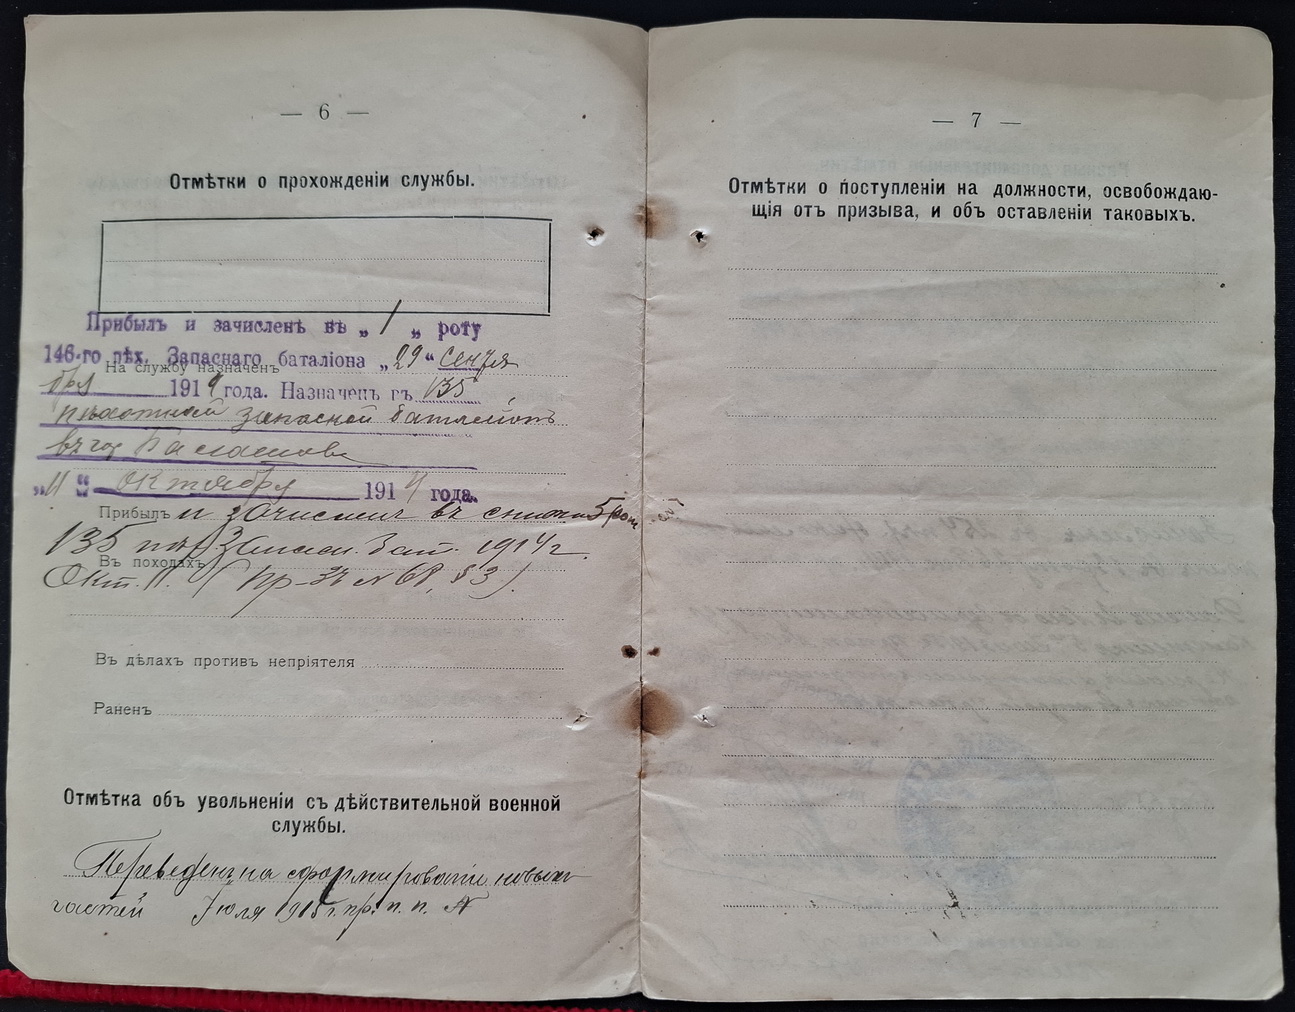 — 6 —
Отмѣтки о прохожденіи службы.
Прибылъ и зачисленъ въ „1„ роту
146-го пѣх. Запаснаго баталіона „29“ сентя
На службу назначенъ
бря 1914 года. Назначенъ въ 135
пѣхотный запасной баталіонъ
въ гор Балашовъ
„11“ октября 1914 года.
Прибылъ и зачисленъ въ списки 5 рот
135 пѣх Запасн. бат. 1914 г.
Въ походахъ
Окт. 11. (пр-зъ № 68, § 3)
Въ дѣлахъ противъ непріятеля
Раненъ
Отмѣтка объ увольненіи съ дѣйствительной военной
службы.
Переведенъ на сформированіе новыхъ
частей Іюля 1915 г. пр. п. п. №
— 7 —
Отмѣтки о поступленіи на должности, освобождаю-
щія отъ призыва, и объ оставленіи таковыхъ.